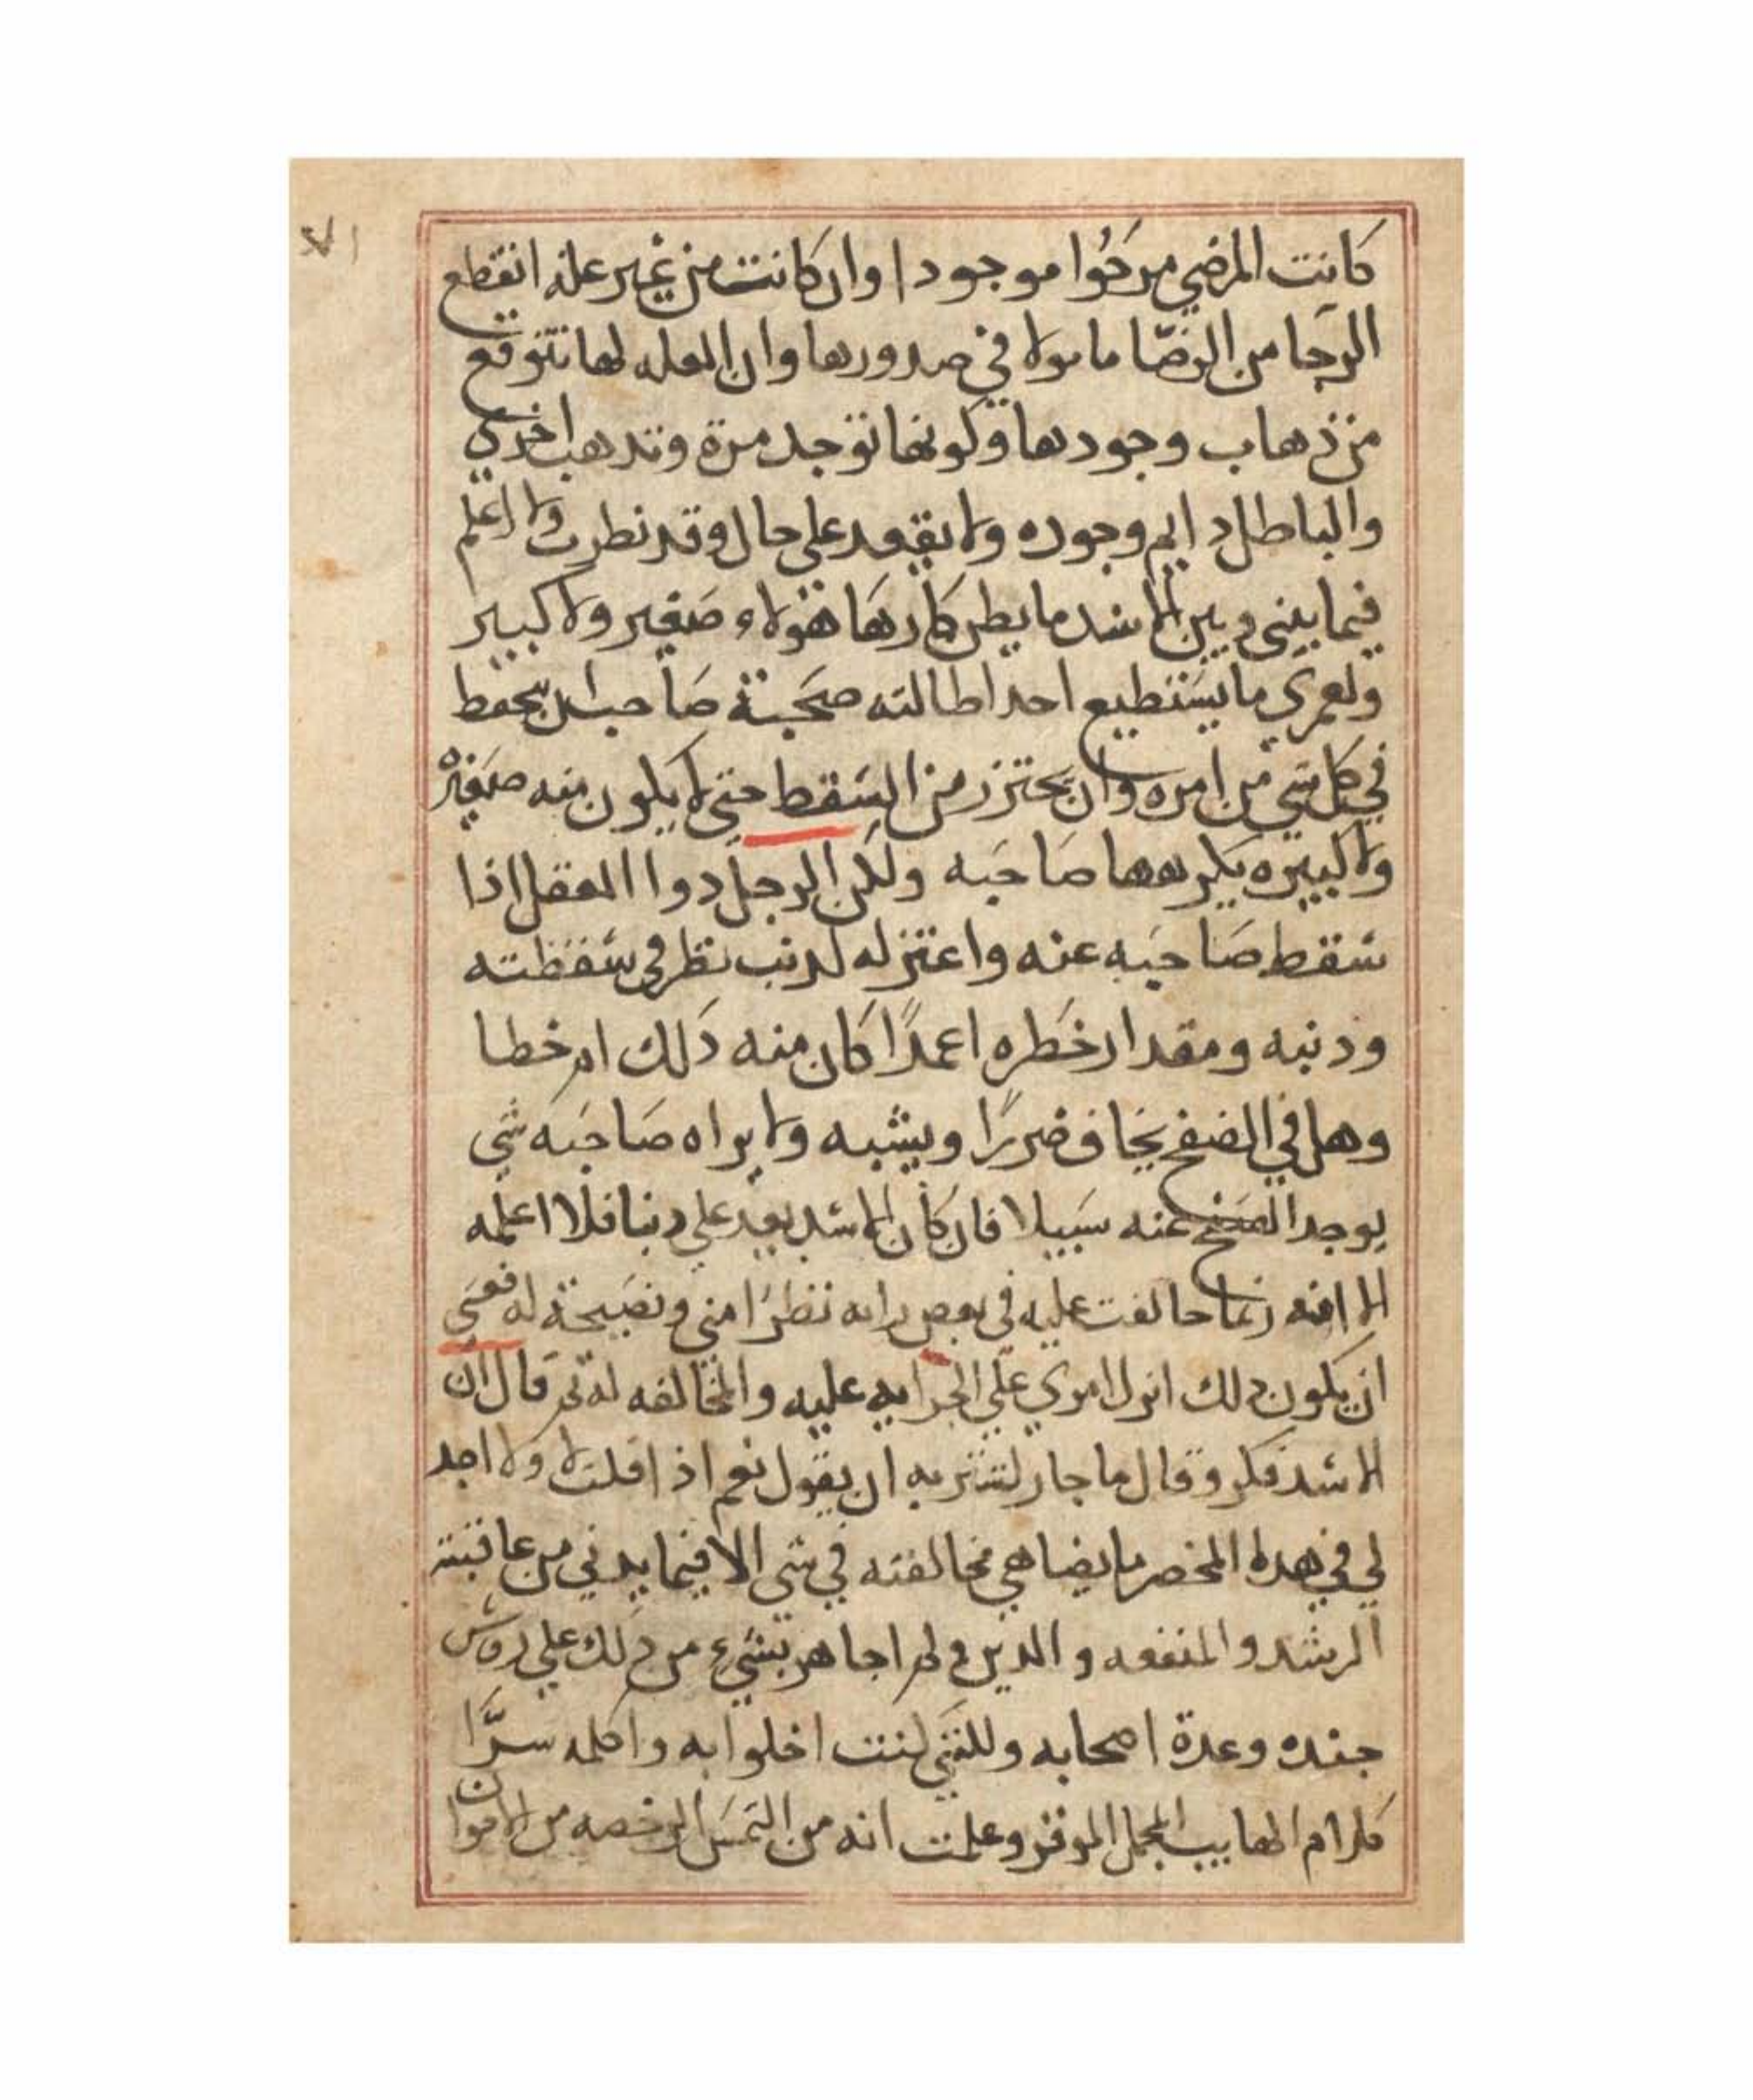 كانت المرضي مرحوا موجودا وان كانت من غير علة انقطع
الرجا من الرضا ما مولا في صدورها وان العله لها تتوقع
من ذهاب وجودها وكونها توجد مرة وتدهب اخري
والباطل دايم وجوده ولا يفقد علي حال وقد نظرت ولا اعلم
فيما بيني وبين الاسد ما يطن كارها هولاء صغير ولا كبير
ولعمري ما يستطيع احد اطالته صحبة صاحب ان يحفط
في كل شي من امره وان يحتزر من السقط حتي لا يكون منه صغيره
ولا كبيره يكرهها صاحبه ولكن الرجل دوا العقل اذا
سقط صاحبه عنه واعتزله لدنب نظر في سقطته
ودنبه ومقدار خطره اعمدا كان منه دلك ام خطا
وهل في الصفح يخاف ضررا ويشبه ولا يراه صاحبه شي
يوجد الصفح عنه سبيلا فان كان الاسد يعد علي دنبا فلا اعلمه
الا انه ربما خالفت عليه في بعض رايه نظرا مني ونصيحة له فعسي
ان يكون دلك انزل امري علي الجرايه عليه والمخالفه له ثم قال ان
الاسد فكر وقال ما جار لشتربه ان يقول نعم اذ اقلت لا ولا اجد
لي في هدا المخصر ما يضاهي مخالفته في شي الا فيما يدني من عاقبته
الرشد والمنفعه والدين ولم اجاهر بشيء من دلك علي روس
جنده وعدة اصحابه وللنني كنت اخلوا به واكلمه سرا
كلام الهايب المجمل الموقر وعلمت انه من التمس الرخصه من الاخوان